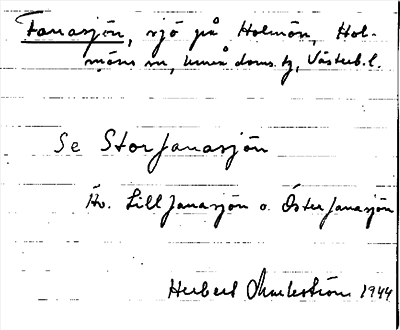 Fanasjön, sjö på Holmön, Hol-
möns sn, Umeå doms. tg, Västerb. l.
Se Storfanasjön
Äv. Lillfanasjön o. Österfanasjön
Herbert Markström 1944